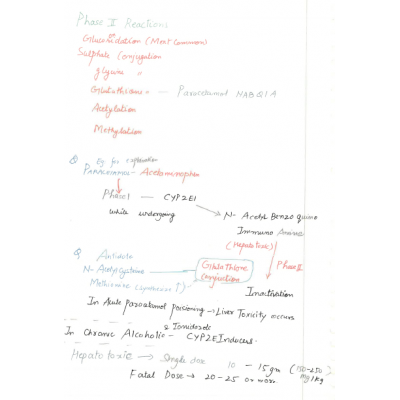 Phase II Reactions
Glucoridation (Most Common)
Sulphate Conjugation
glycine "
Glutathione " — Paracetamol NABQIA
Acetylation
Methylation
Q Eg for explanation
PARACETAMOL - Acetaminophen
Phase I — CYP2E1
while undergoing
N- Acetyl Benzoquino
Immuno Amines
(Hepatotoxic)
Phase II
Q Antidote
N- Acetylcysteine
Glutathione
Conjugation
Methionine (cysteine ↑)
Inactivation
In Acute Paracetamol poisoning → Liver Toxicity occurs
& Ioniderole
In Chronic Alcoholic - CYP2E Inducers.
Hepatotoxic → Single dose 10 - 15gm (150-250 mg/kg)
Fatal Dose → 20-25 or more.